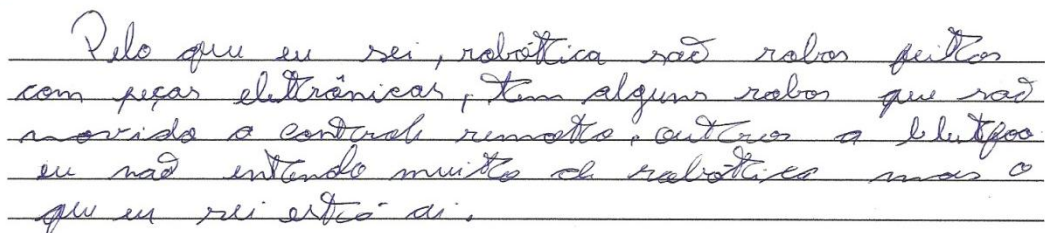 Pelo que eu sei, robótica são robos feitos
com peças eletrônicas, tem alguns robos que são
movido a controle remoto, outros a blutfoo
eu não entendo muito de robotica mas o
que eu sei está ai.